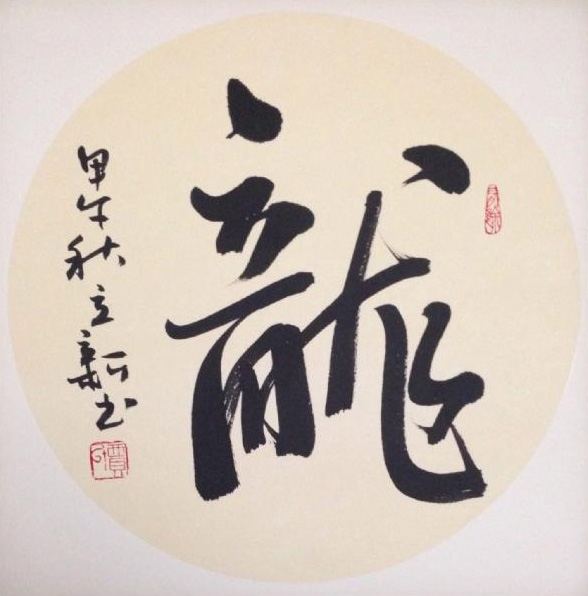 龍
甲午秋立新书